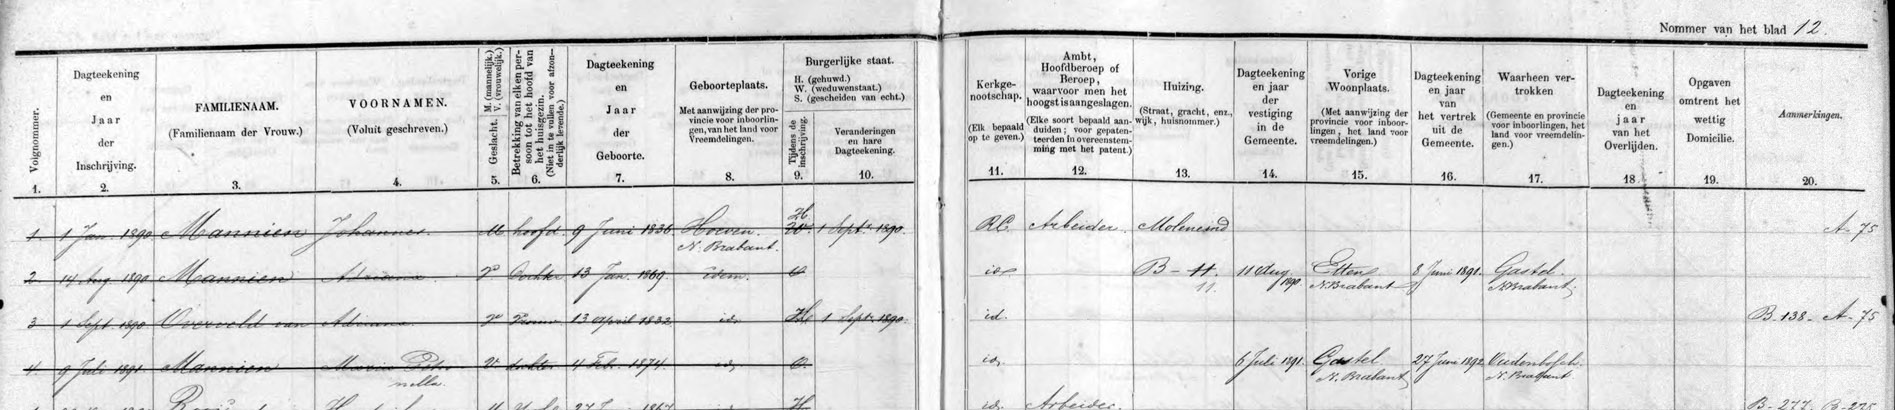 Nommer van het blad 12.
Volgnommer.
1.
Dagteekening
en
Jaar
der
Inschrijving.
2.
FAMILIENAAM.
(Familienaam der Vrouw.)
3.
VOORNAMEN.
(Voluit geschreven.)
4.
Geslacht. M. (mannelijk.) V. (vrouwelijk.)
5.
Betrekking van elken per-
soon tot het hoofd van
het huisgezin.
(Niet in te vullen voor afzon-
derlijk levende.)
6.
Dagteekening
en
Jaar
der
Geboorte.
7.
Geboorteplaats.
Met aanwijzing der pro-
vincie voor inboorlin-
gen, van het land voor
Vreemdelingen.
8.
Burgerlijke staat.
H. (gehuwd.)
W. (weduwenstaat.)
S. (gescheiden van echt.)
Tijdens de
inschrijving.
9.
Veranderingen
en hare
Dagteekening.
10.
Kerkge-
nootschap.
(Elk bepaald
op te geven.)
11.
Ambt,
Hoofdberoep of
Beroep,
waarvoor men het
hoogst is aangeslagen.
(Elke soort bepaald aan-
duiden; voor gepaten-
teerden in overeenstem-
ming met het patent.)
12.
Huizing.
(Straat, gracht, enz.,
wijk, huisnommer.)
13.
Dagteekening
en jaar
der
vestiging
in de
Gemeente.
14.
Vorige
Woonplaats.
(Met aanwijzing der
provincie voor inboor-
lingen, het land voor
vreemdelingen.)
15.
Dagteekening
en jaar
van
het vertrek
uit de
Gemeente.
16.
Waarheen ver-
trokken
(Gemeente en provincie
voor inboorlingen, het
land voor vreemdelin-
gen.)
17.
Dagteekening
en
jaar
van het
Overlijden.
18.
Opgaven
omtrent het
wettig
Domicilie.
19.
Aanmerkingen.
20.
1. 1 Jan. 1890 Mannien Johannes M hoofd. 9 Juni 1836 Hoeven. H. W. 1 Sept. 1890 R.C. Arbeider. Moleneind A-75
N. Brabant.
2 14 Aug 1890 Mannien Adriana V Dochter 13 Jan. 1869 idem. O id B-11. 11 Aug 1890 Etten 8 Juni 1891. Gastel.
11. N. Brabant N. Brabant
3 1 Sept 1890 Overveld van Adriana V Vrouw 13 April 1832 id. H 1 Sept. 1890. id. B-138- A-75
4 9 Juli 1891. Mannien Maria Petro V. dochter 4 Feb. 1874. id. O. id. 6 Juli 1891. Gastel 27 Juni 1892 Oudenbosch.
nella N. Brabant N. Brabant
27 1867 H id. Arbeider. B-277 B-275